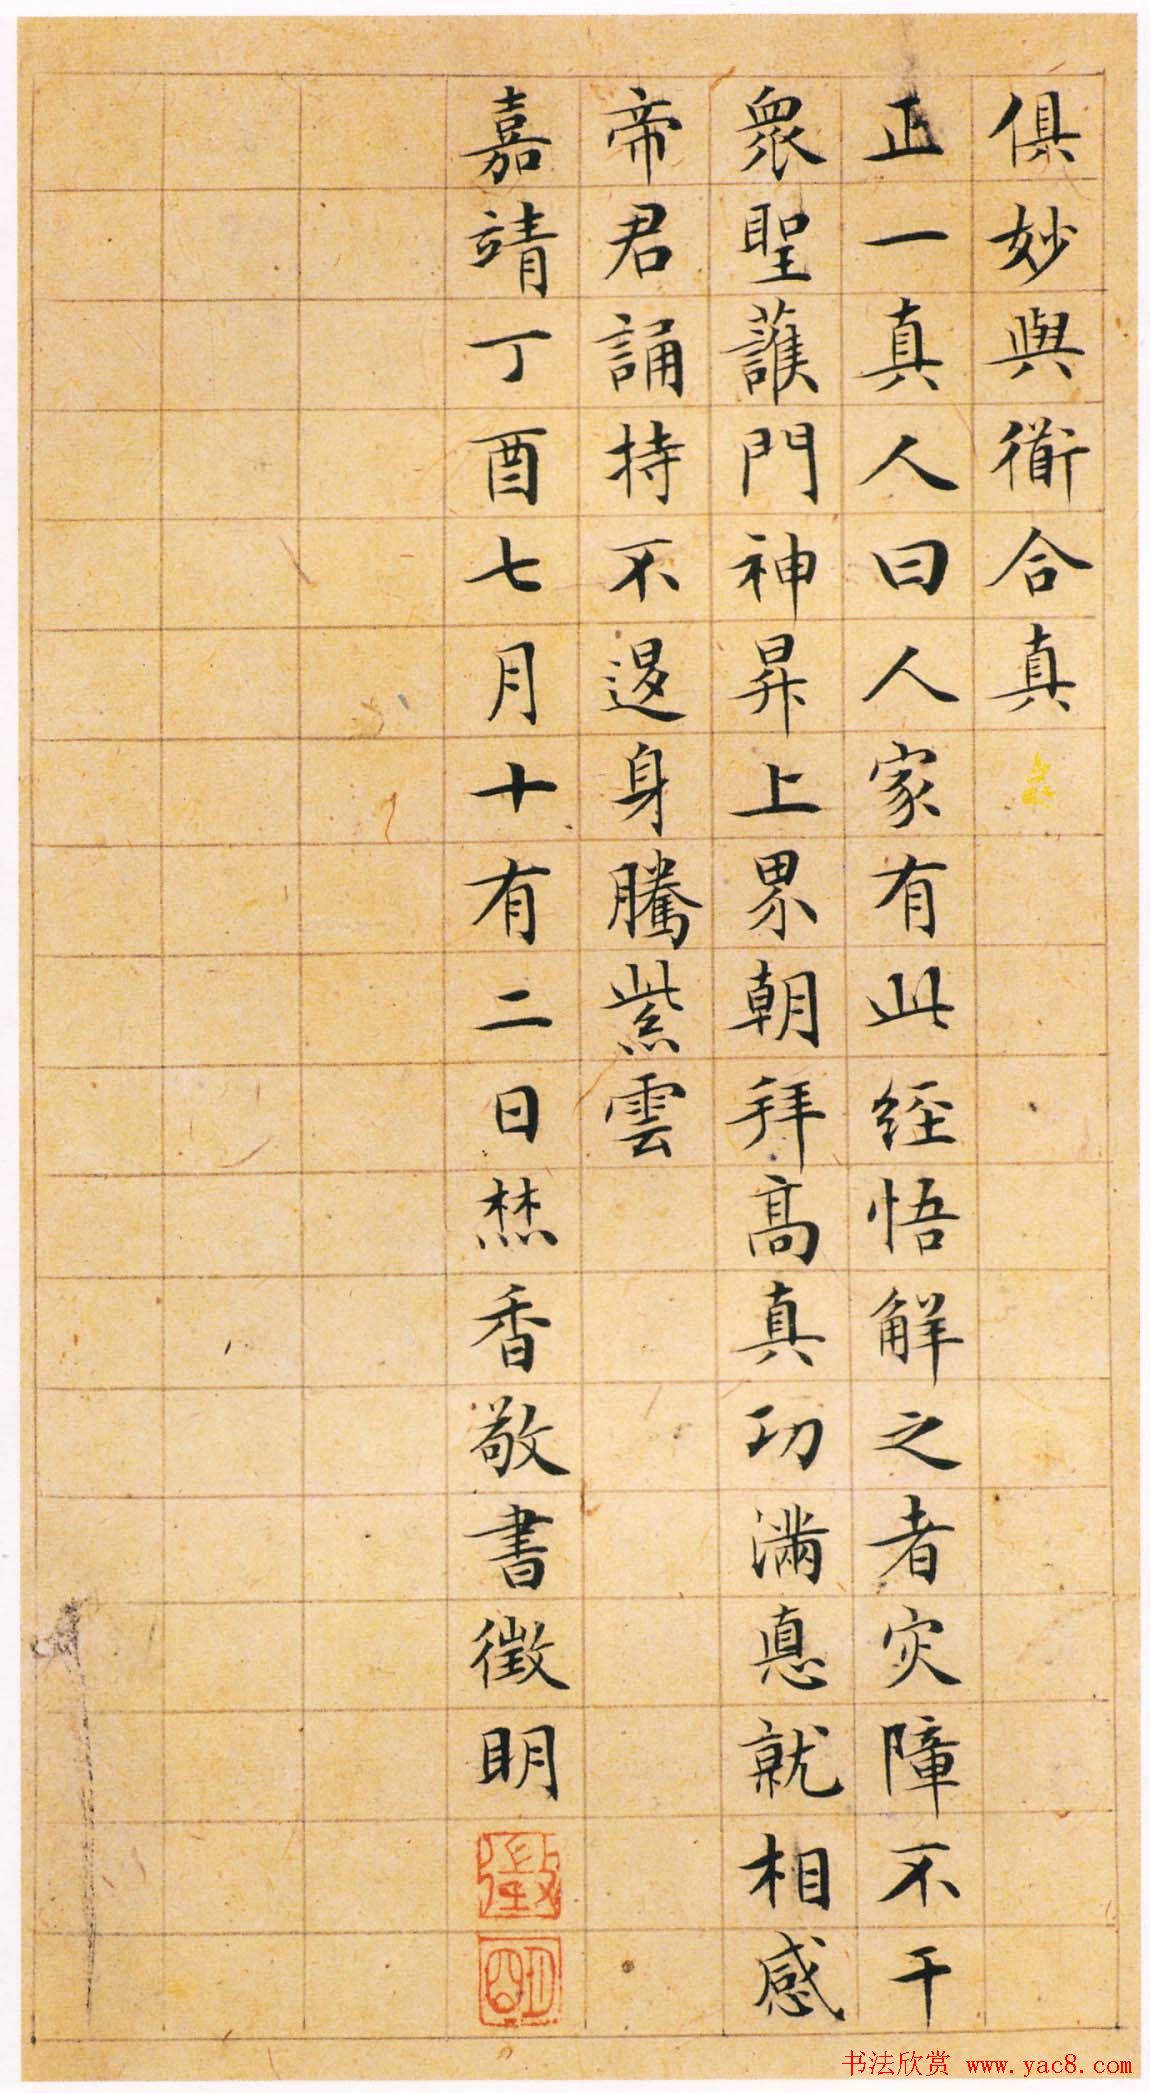 俱妙與衜合真
正一真人曰人家有此經悟解之者災障不干
衆聖護門神昇上界朝拜高真功滿惪就相感
帝君誦持不退身騰紫雲
嘉靖丁酉七月十有二日焚香敬書徵明
徵
明
书法欣赏 www.yac8.com